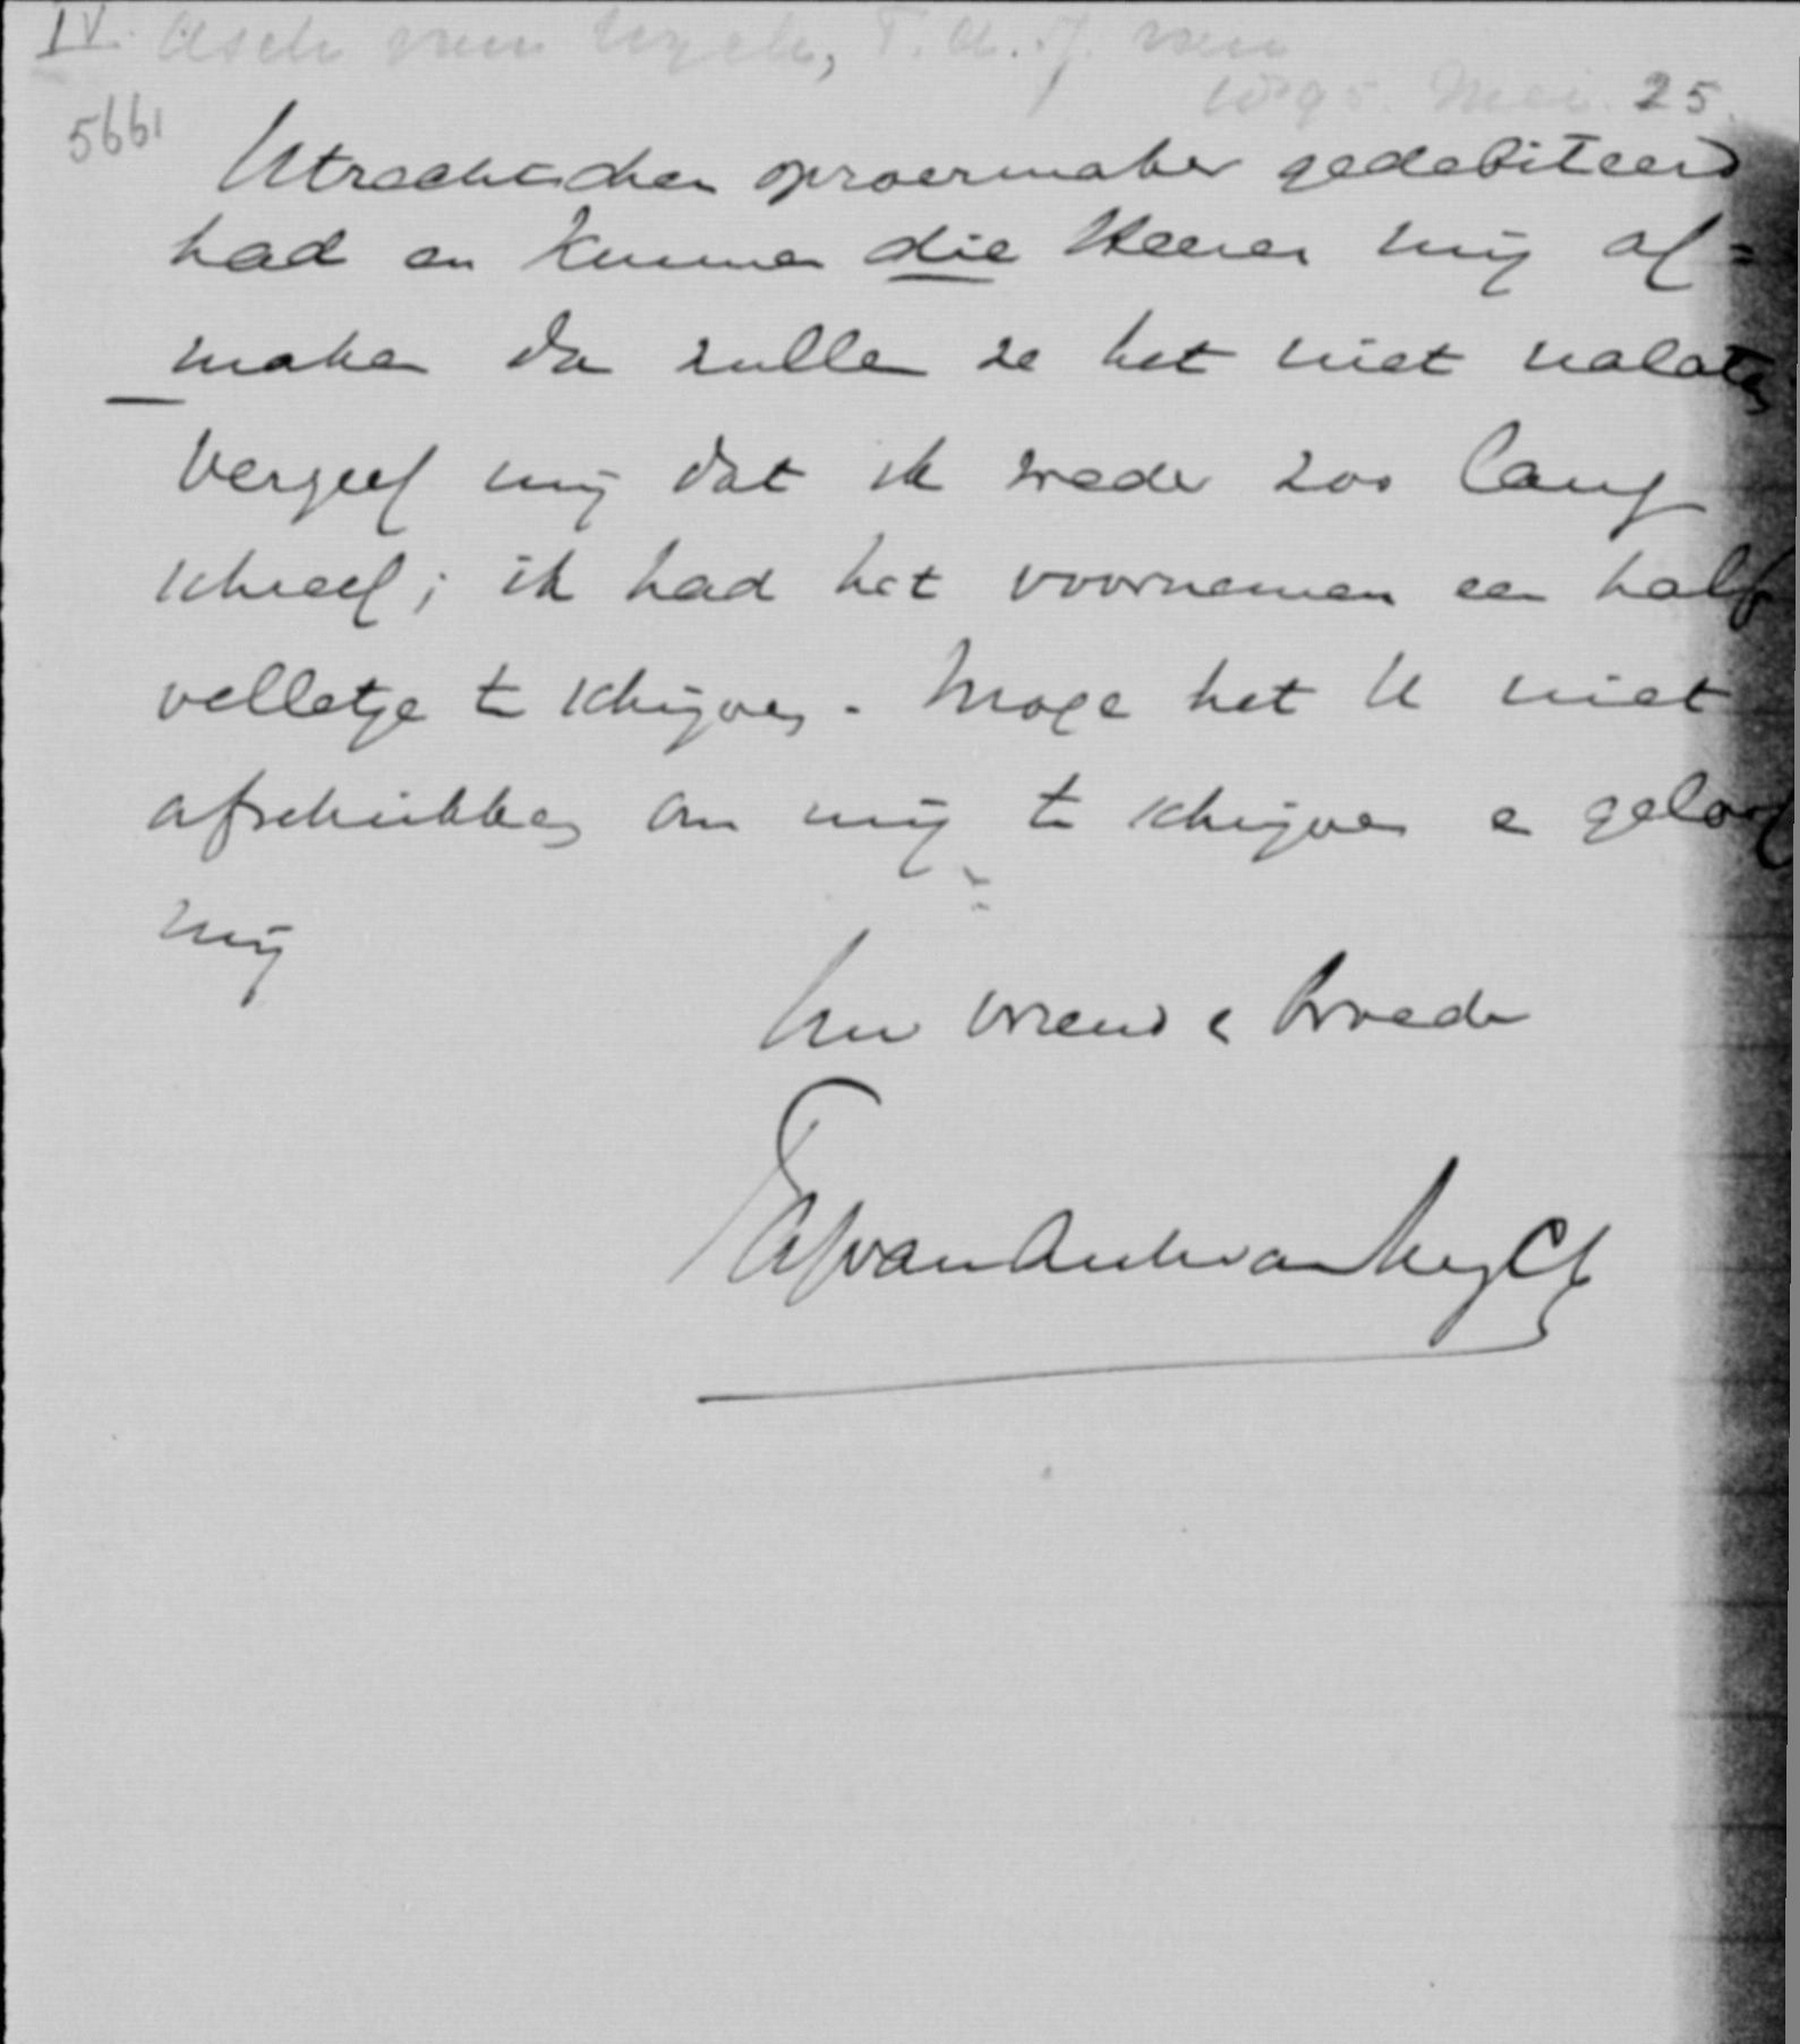 IV. Asch van Wyck, T.A.J. van
1895. Mei. 25.
5661
Utrechtschen oproermaker gedebiteerd
had en kunnen die Heeren mij af=
maken dan zullen ze het niet nalaten
Vergeef mij dat ik weder zoo lang
schreef; ik had het voornemen een half
velletje te schrijven. Moge het U niet
afschrikken om mij te schrijven en geloof
mij
Uw vriend en broeder
TAJvanAschvanWyck